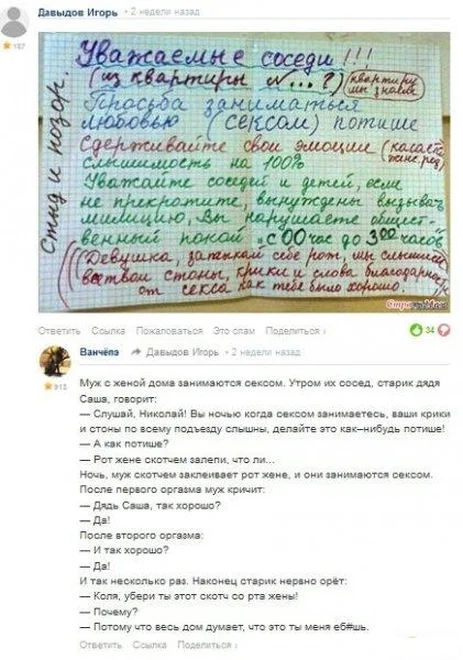 Давыдов Игорь • 2 недели назад
187
Уважаемые соседи!!!
(из квартиры №...?) (квартиру мы знаем)
Просьба заниматься
любовью (сексом) потише
Сдерживайте свои эмоции (касается жене.ред)
слышимость на 100%
Уважайте соседей и детей, если
не прекратите, вынуждены вызывать
милицию, Вы нарушаете общест-
венный покой "с 00 час до 3 00 часов
(Девушка, затыкай себе рот, мы слышим
все твои стоны, крики и слова благодарнос
от секса как тебе было хорошо.
Стыд и позор.
Ответить Ссылка Пожаловаться Это спам Поделиться
34
Ванчёпэ Давыдов Игорь • 2 недели назад
915
Муж с женой дома занимаются сексом. Утром их сосед, старик дядя
Саша, говорит:
— Слушай, Николай! Вы ночью когда сексом занимаетесь, ваши крики
и стоны по всему подъезду слышны, делайте это как-нибудь потише!
— А как потише?
— Рот жене скотчем залепи, что ли...
Ночь, муж скотчем заклеивает рот жене, и они занимаются сексом.
После первого оргазма муж кричит:
— Дядь Саша, так хорошо?
— Да!
После второго оргазма:
— И так хорошо?
— Да!
И так несколько раз. Наконец старик нервно орёт:
— Коля, убери ты этот скотч со рта жены!
— Почему?
— Потому что весь дом думает, что это ты меня еб#шь.
Ответить Ссылка Поделиться